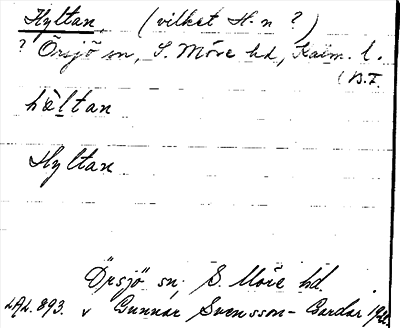 Hyltan, (vilket H. n ?)
? Örsjö sn, S. Möre hd, Kalm. l.
(B.T.
hèltan
Hyltan
Örsjö sn. S. Möre hd.
LAL. 893. v Gunnar Svensson-